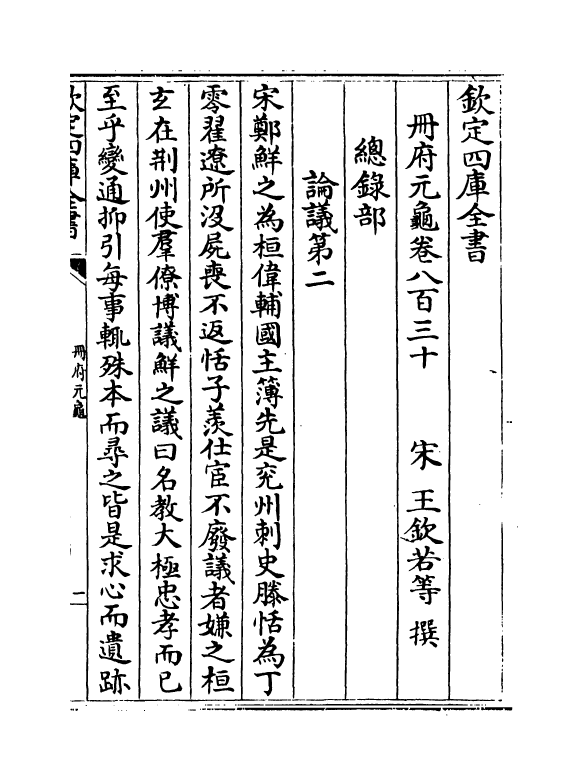 欽定四庫全書
冊府元龜卷八百三十 宋 王欽若等 撰
總錄部
論議第二
宋鄭鮮之為桓偉輔國主簿先是兖州刺史滕恬為丁
零翟遼所沒屍喪不返恬子羨仕宦不廢議者嫌之桓
玄在荆州使羣僚博議鮮之議曰名教大極忠孝而已
至乎變通抑引每事輒殊本而尋之皆是求心而遺跡
欽定四庫全書
冊府元龜
二